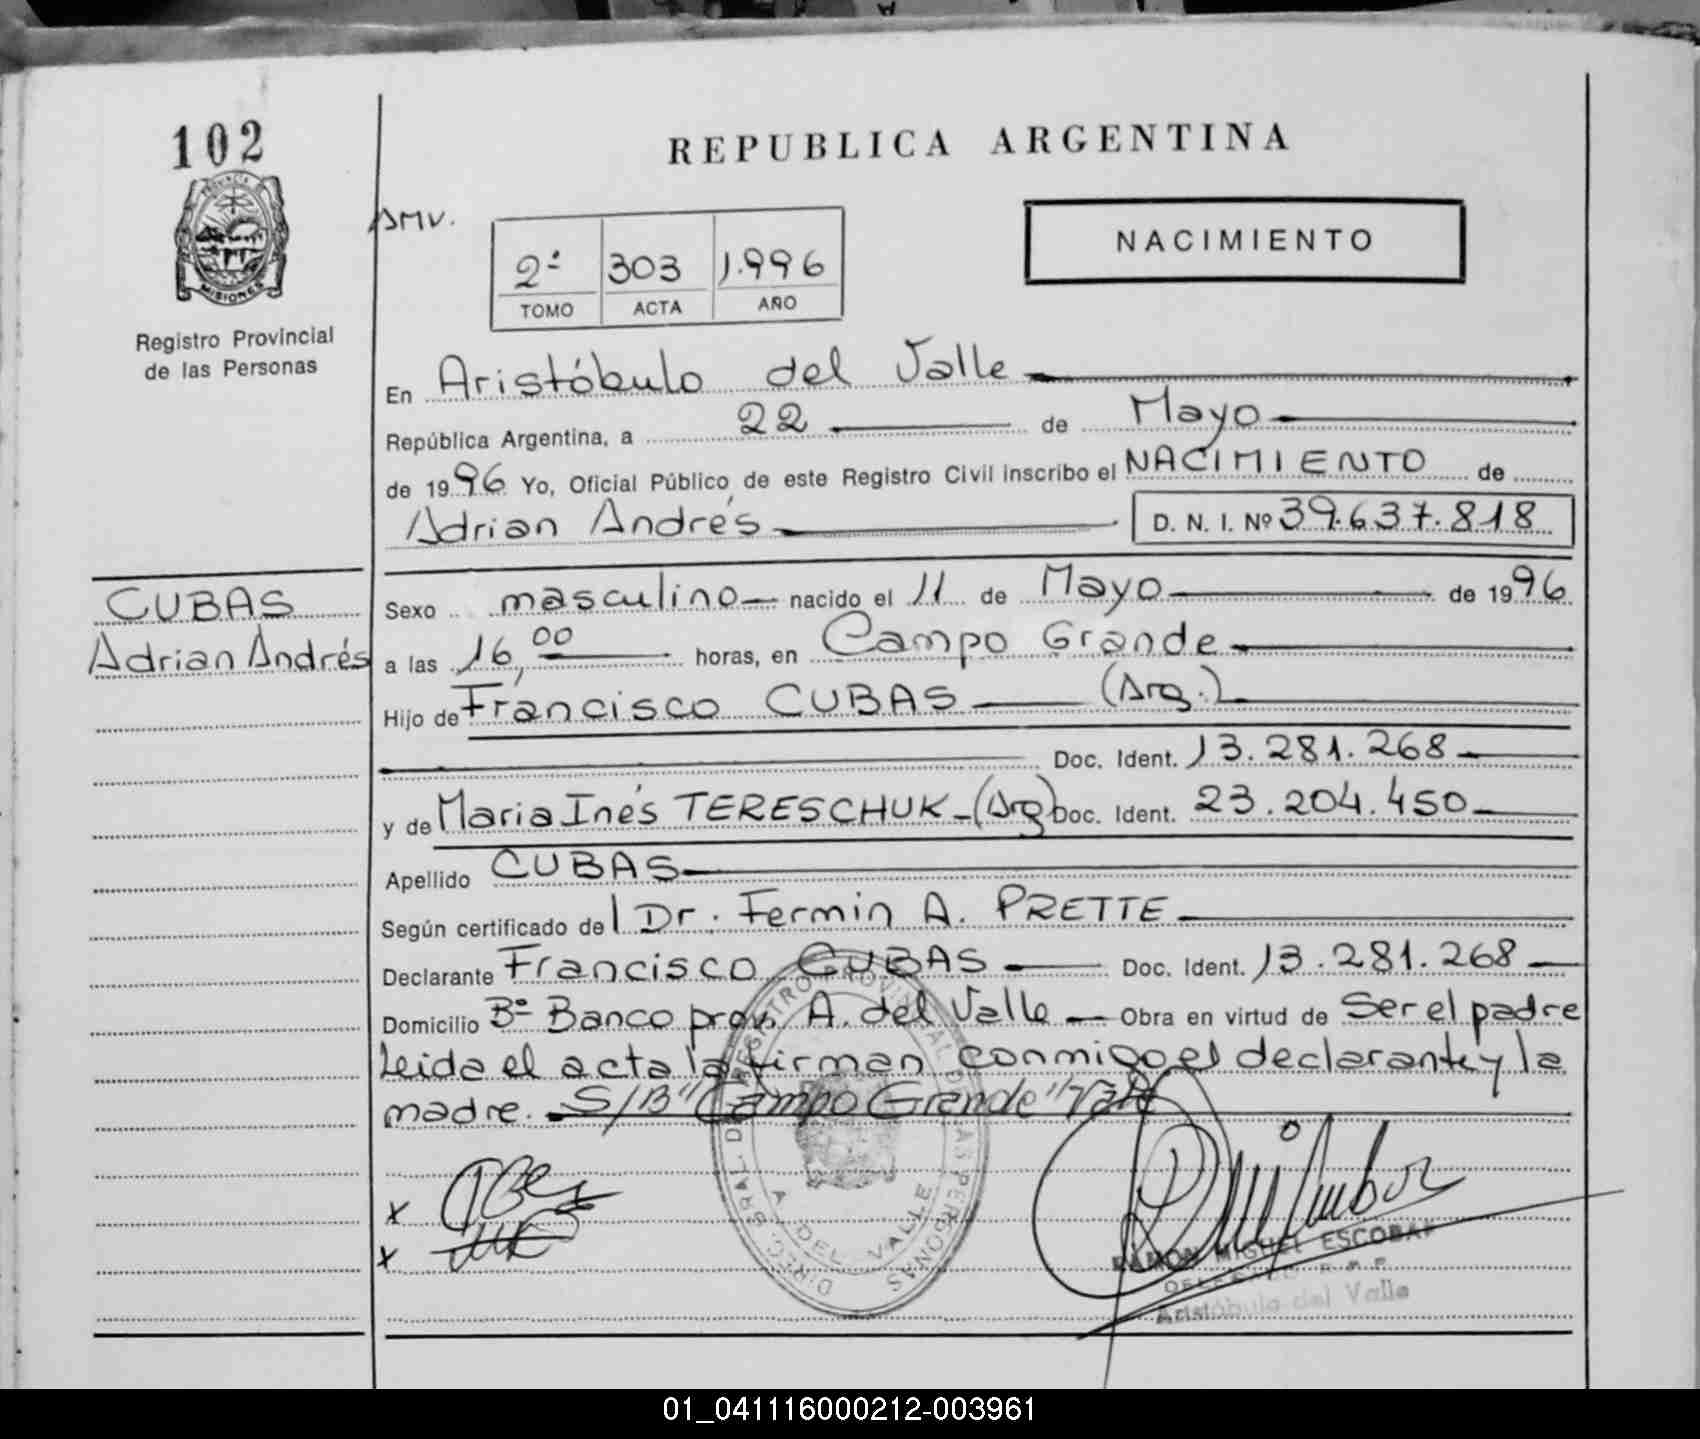 102
PROVINCIA DE
MISIONES
Registro Provincial
de las Personas
REPUBLICA ARGENTINA
AMV.
2º 303 1.996
TOMO ACTA AÑO
NACIMIENTO
En Aristóbulo del Valle
República Argentina, a 22 de Mayo
de 1996 Yo, Oficial Público de este Registro Civil inscribo el NACIMIENTO de
Adrian Andrés D. N. I. Nº 39.637.818
CUBAS
Adrian Andrés
Sexo masculino nacido el 11 de Mayo de 1996
a las 16,00 horas, en Campo Grande
Hijo de Francisco CUBAS (Arg.)
Doc. Ident. 13.281.268
y de Maria Inés TERESCHUK - (Arg) Doc. Ident. 23.204.450
Apellido CUBAS
Según certificado del Dr. Fermin A. PRETTE
Declarante Francisco CUBAS Doc. Ident. 13.281.268
Domicilio Bº Banco prov. A. del Valle Obra en virtud de Ser el padre
Leida el acta la firman conmigo el declarante y la
madre. S/B "Campo Grande" Vale
x
x
DIREC. GRAL. DE REGISTRO PROVINCIAL DE LAS PERSONAS
A. DEL VALLE
RAMON MIGUEL ESCOBAR
DELEGADO R. P. P.
Aristóbulo del Valle
01_041116000212-003961